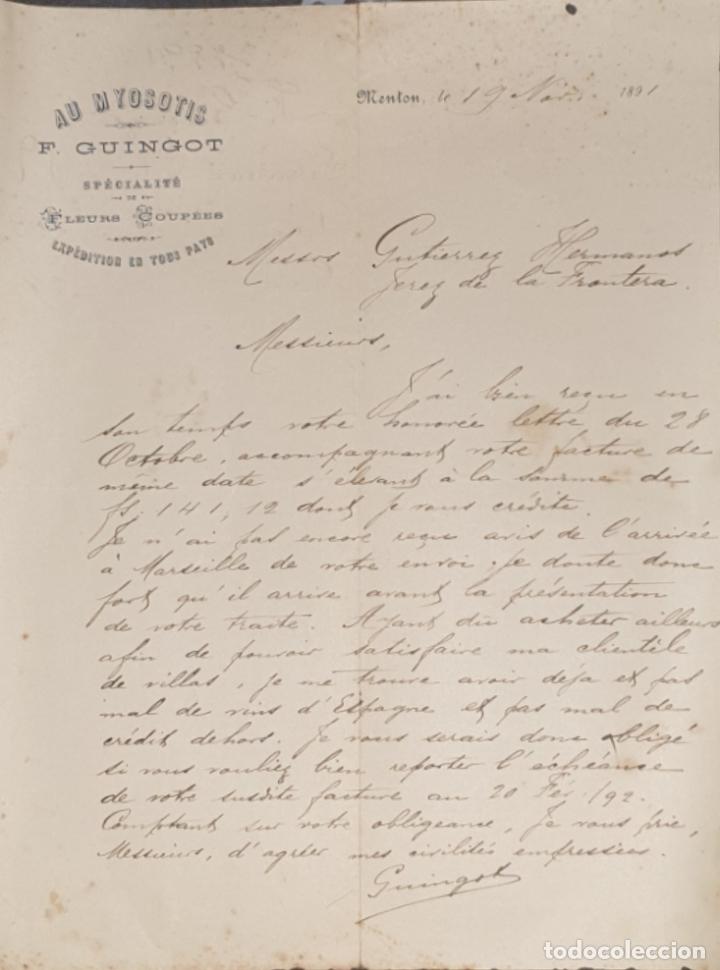 AU MYOSOTIS
F. GUINGOT
SPÉCIALITÉ
DE
FLEURS COUPÉES
EXPÉDITION EN TOUS PAYS
Menton, le 19 Nov. 1891
Messrs Gutierrez Hermanos
Jerez de la Frontera.
Messieurs,
J'ai bien reçu en
son temps votre honorée lettre du 28
Octobre, accompagnant votre facture de
même date s'élevant à la somme de
fs. 141,12 dont je vous crédite.
Je n'ai pas encore reçu avis de l'arrivée
à Marseille de votre envoi. Je doute donc
fort qu'il arrive avant la présentation
de votre traite. Ayant dû acheter ailleurs
afin de pouvoir satisfaire ma clientèle
de villas, je me trouve avoir déja et pas
mal de vins d'Espagne et pas mal de
crédit dehors. Je vous serais donc obligé
si vous vouliez bien reporter l'échéance
de votre susdite facture au 20 Fév. /92.
Comptant sur votre obligeance, Je vous prie,
Messieurs, d'agréer mes civilités empressées.
Guingot
todocoleccion